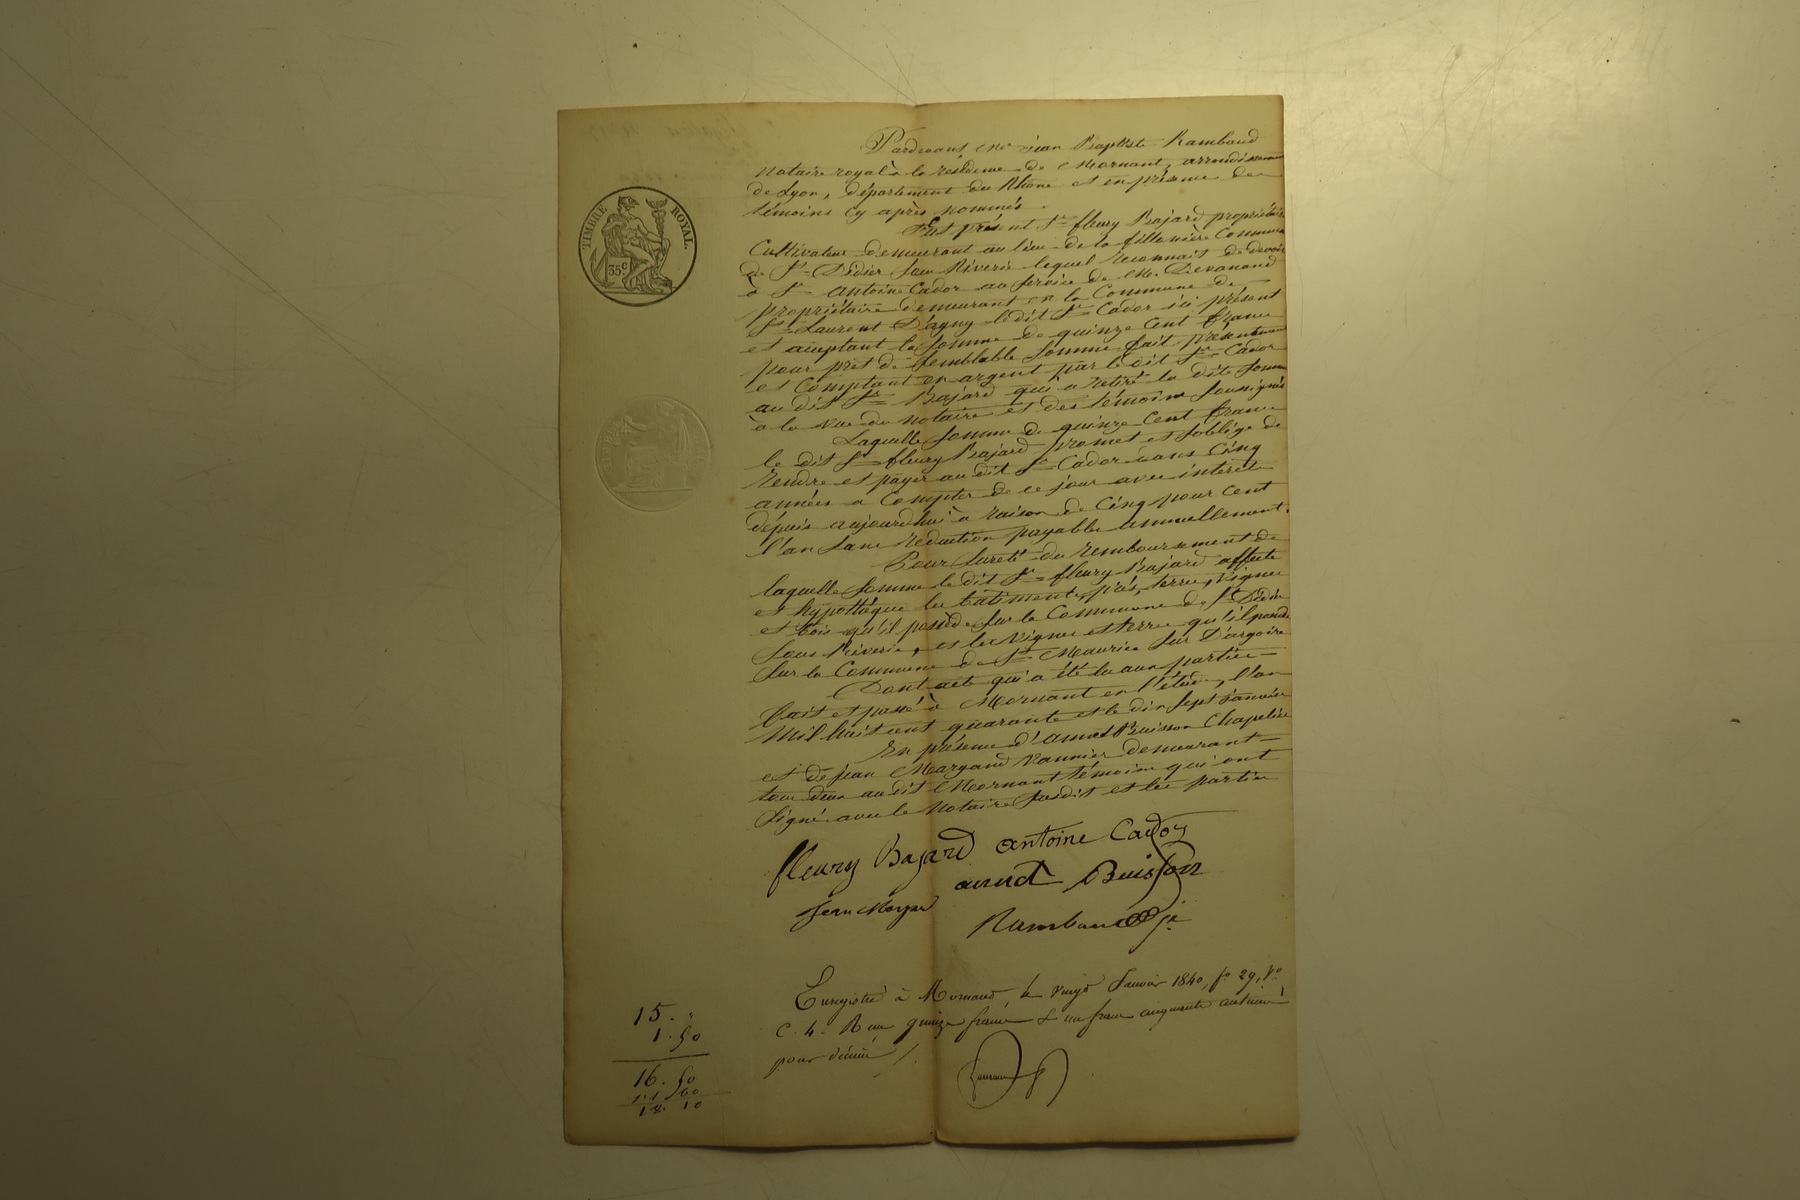 Pardevant Me Jean Baptiste Rambaud
Notaire royal à la résidence de Mornant, arrondissement
de Lyon, département du Rhône et en présence des
témoins cy après nommés.
TIMBRE ROYAL.
35c
Est présent Sr fleury Bajard propriétaire
Cultivateur demeurant au lieu de la Commune
de St Didier sous Riverie lequel reconnait devoir
à Sr Antoine Cador au service de M. Devanand
propriétaire demeurant en la Commune de
St Laurent D'agny ledit Sr Cador ici présent
et acceptant la somme de quinze cent francs
pour prêt de semblable somme fait présentement
et Comptant en argent par le dit Sr Cador
au dit Sr Bajard qui a retiré la dite somme
à la vue du notaire et des témoins soussignés
Laquelle somme de quinze cent francs
le dit Sr fleury Bajard promet et s'oblige de
rendre et payer au dit Sr Cador dans cinq
années à Compter de ce jour avec intérêt
depuis aujourdhui à raison de cinq pour cent
l'an sans réduction payable annuellement.
Pour sureté du remboursement de
laquelle somme le dit Sr fleury Bajard affecte
et hypothèque les batiments, prés, terres, vignes
et bois qu'il possède sur la Commune de St Didier
sous Riverie, et les vignes et terres qu'il possède
sur la Commune de St Maurice sur D'argoire
Dont acte qui a été lu aux parties
fait et passé à Mornant en l'étude, l'an
Mil huit cent quarante et le dix sept Janvier
En présence d'annet Buisson Chapelier
et de jean Margand vannier demeurant
tous deux au dit Mornant témoins qui ont
signé avec le Notaire susdit et les parties
fleury Bajard antoine Cador
annet Buisson
Jean Margand
Rambaud
Enregistré à Mornant, le vingt Janvier 1840, fo 29, Vo
C. 4. Reçu quinze francs & un franc cinquante centimes
pour décime
15. "
1. 50
16. 50
1 60
18 10